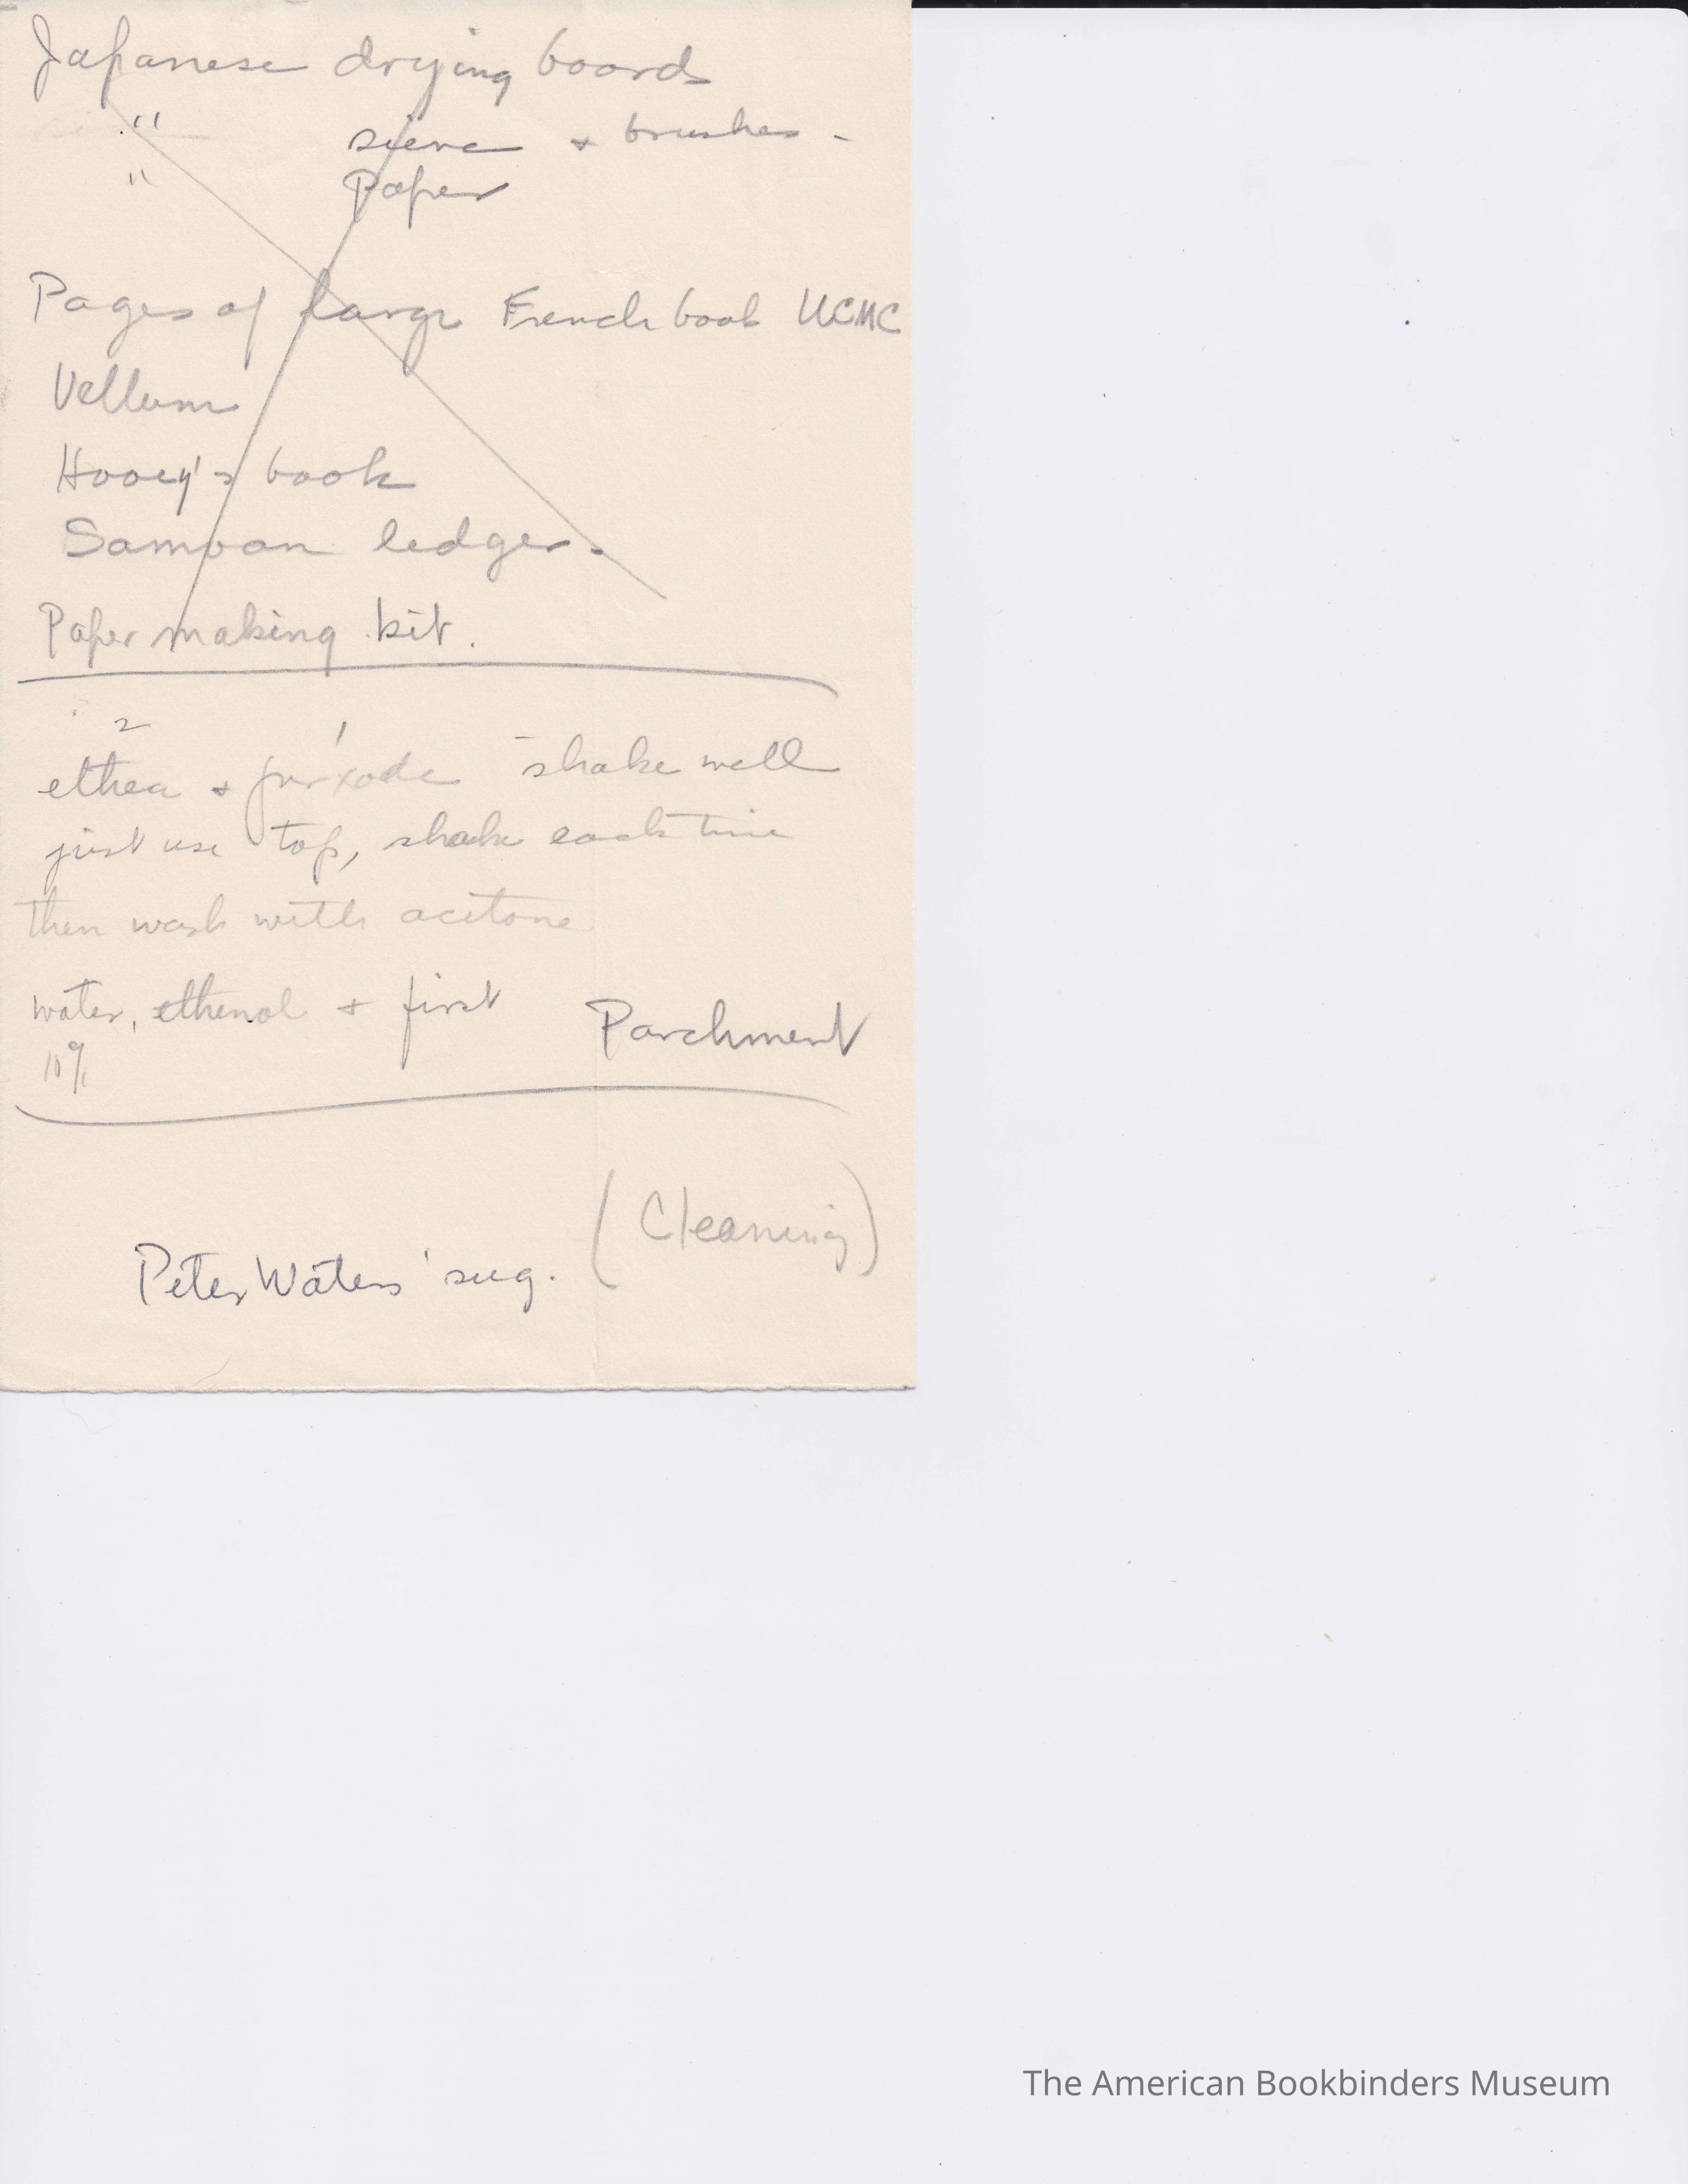 Japanese drying boards
" sieve + brushes -
" Paper
Pages of large French book UCMC
Vellum
Hooey's book
Samoan ledger.
Paper making kit.
2 1
ether + peroxode - shake well
just use top, shake each time
then wash with acetone
water, ethenol + first Parchment
10%
(Cleaning)
Peter Waters' sug.
The American Bookbinders Museum